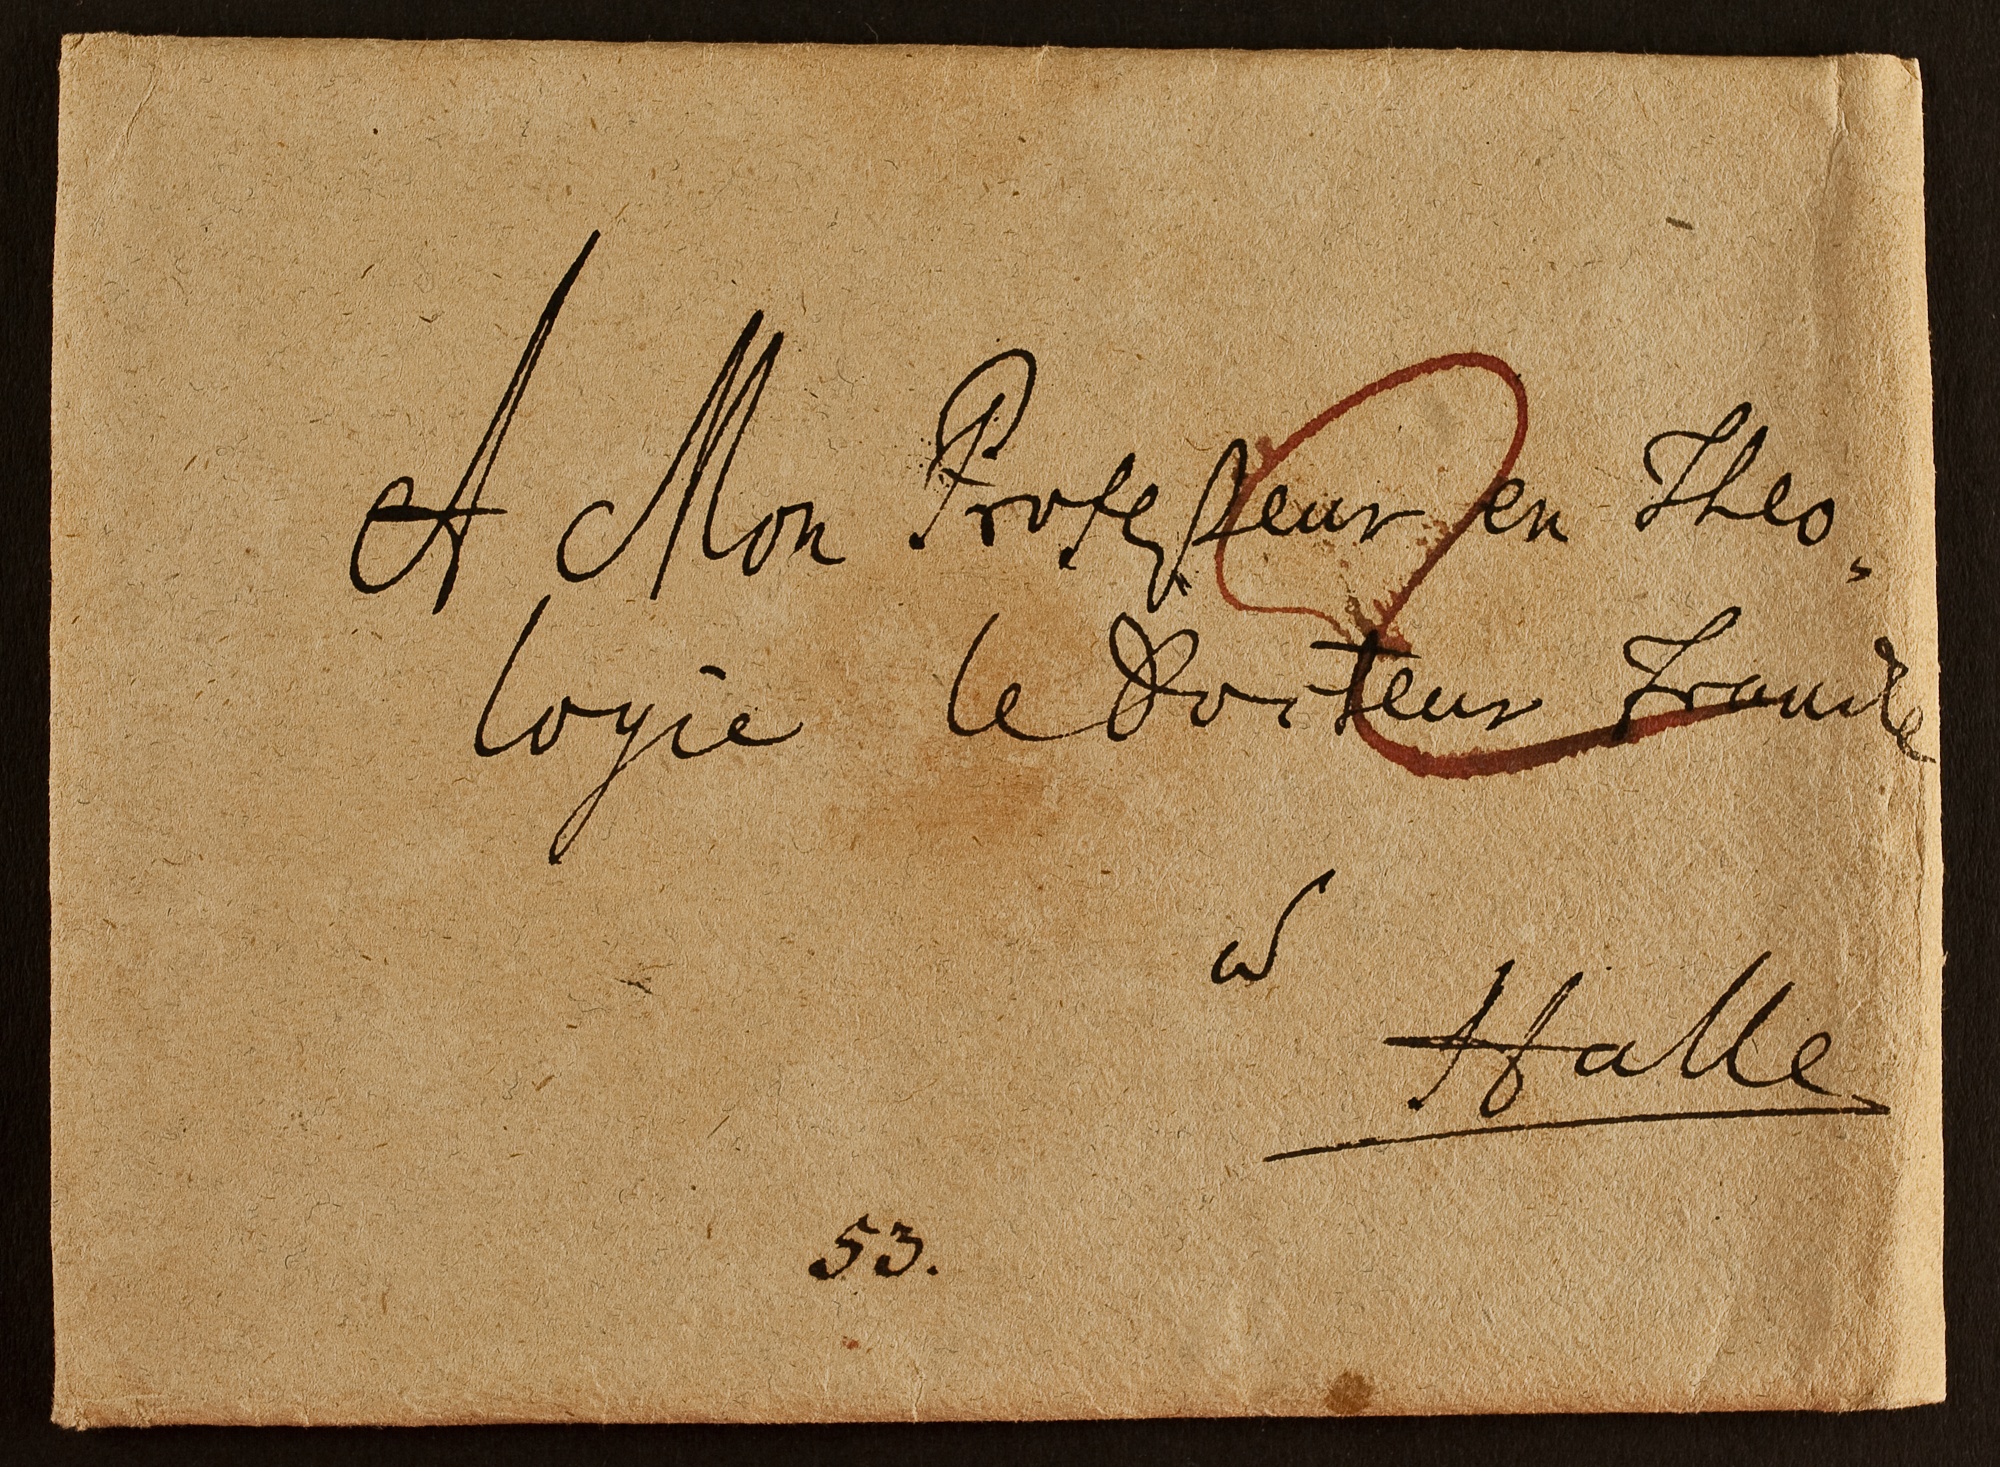 A Mon Professeur en Theo,
logie le Docteur Francke
a
Halle
53.